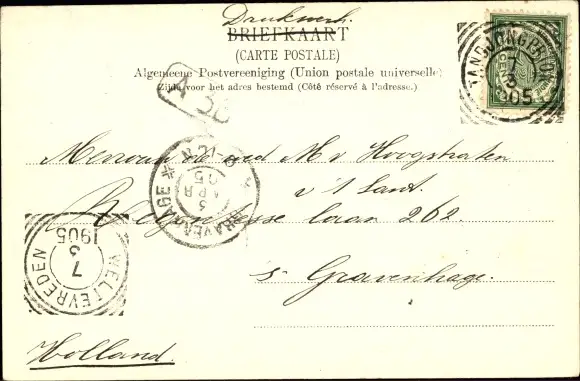 Drukwerk.
BRIEFKAART
(CARTE POSTALE)
Algemeene Postvereeniging (Union postale universelle)
Zijde voor het adres bestemd (Côté réservé à l'adresse.)
TANDJONGPRIOK
7
3
905
CENT
Mevrouw de wed M v Hoogstraten
v 't Sant.
laan 262
s Gravenhage.
Holland.
GRAVENHAGE
5
APR
05
WELTEVREDEN
7
3
1905